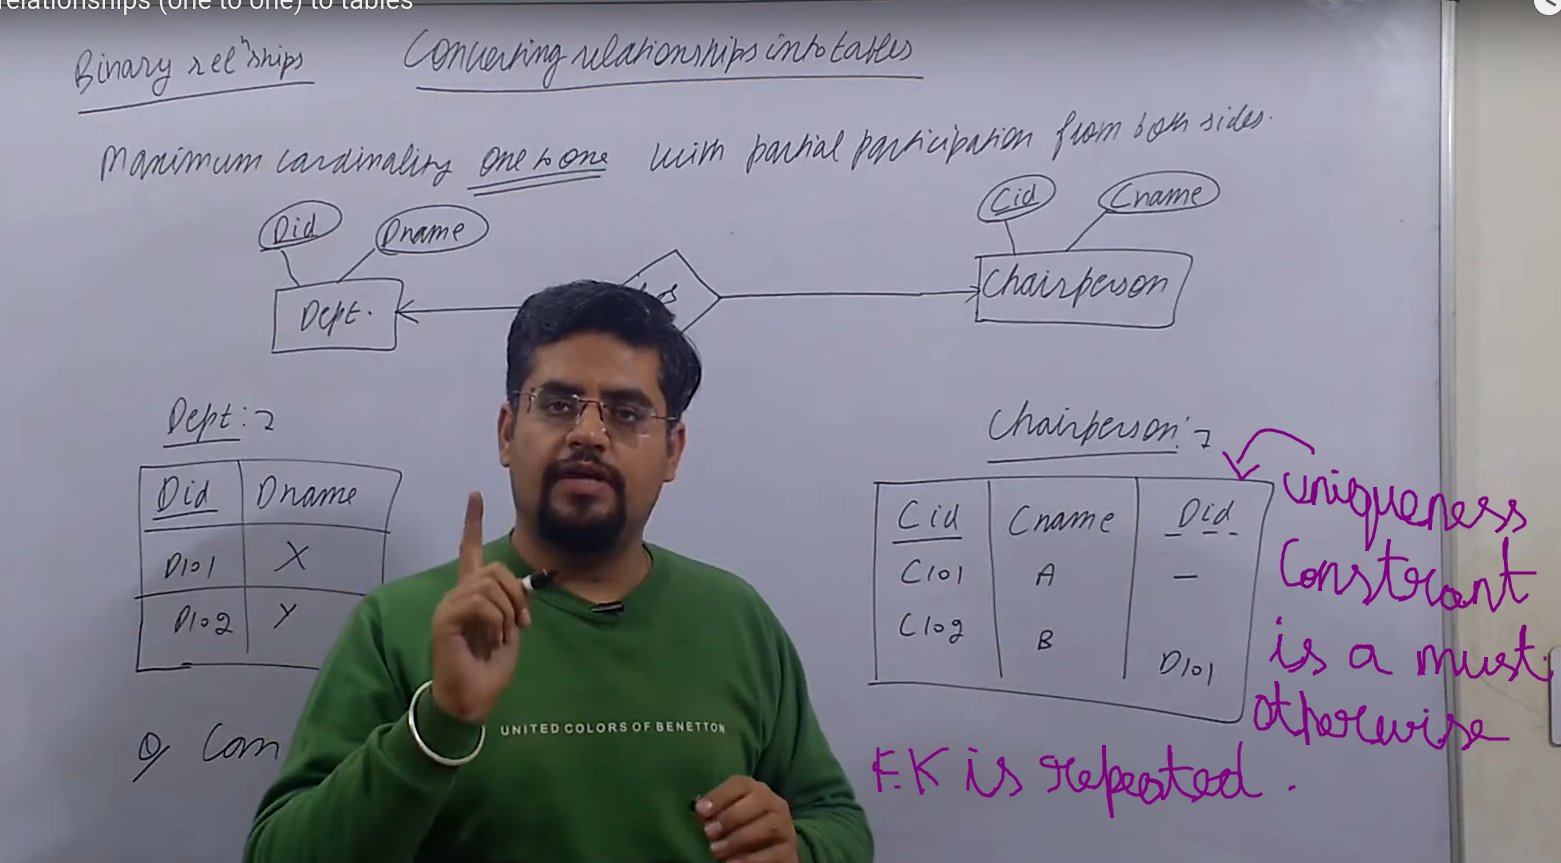 relationships (one to one) to tables
Binary relⁿships
Converting relationships into tables
Maximum cardinality one to one with partial participation from both sides.
Did
Dname
Cid
Cname
Dept.
Chairperson
Dept:
Chairperson:
Did Dname
D101 X
D102 Y
Cid Cname Did
C101 A –
C102 B D101
uniqueness
Constraint
is a must,
otherwise
F.K is repeated.
Q Can
UNITED COLORS OF BENETTON